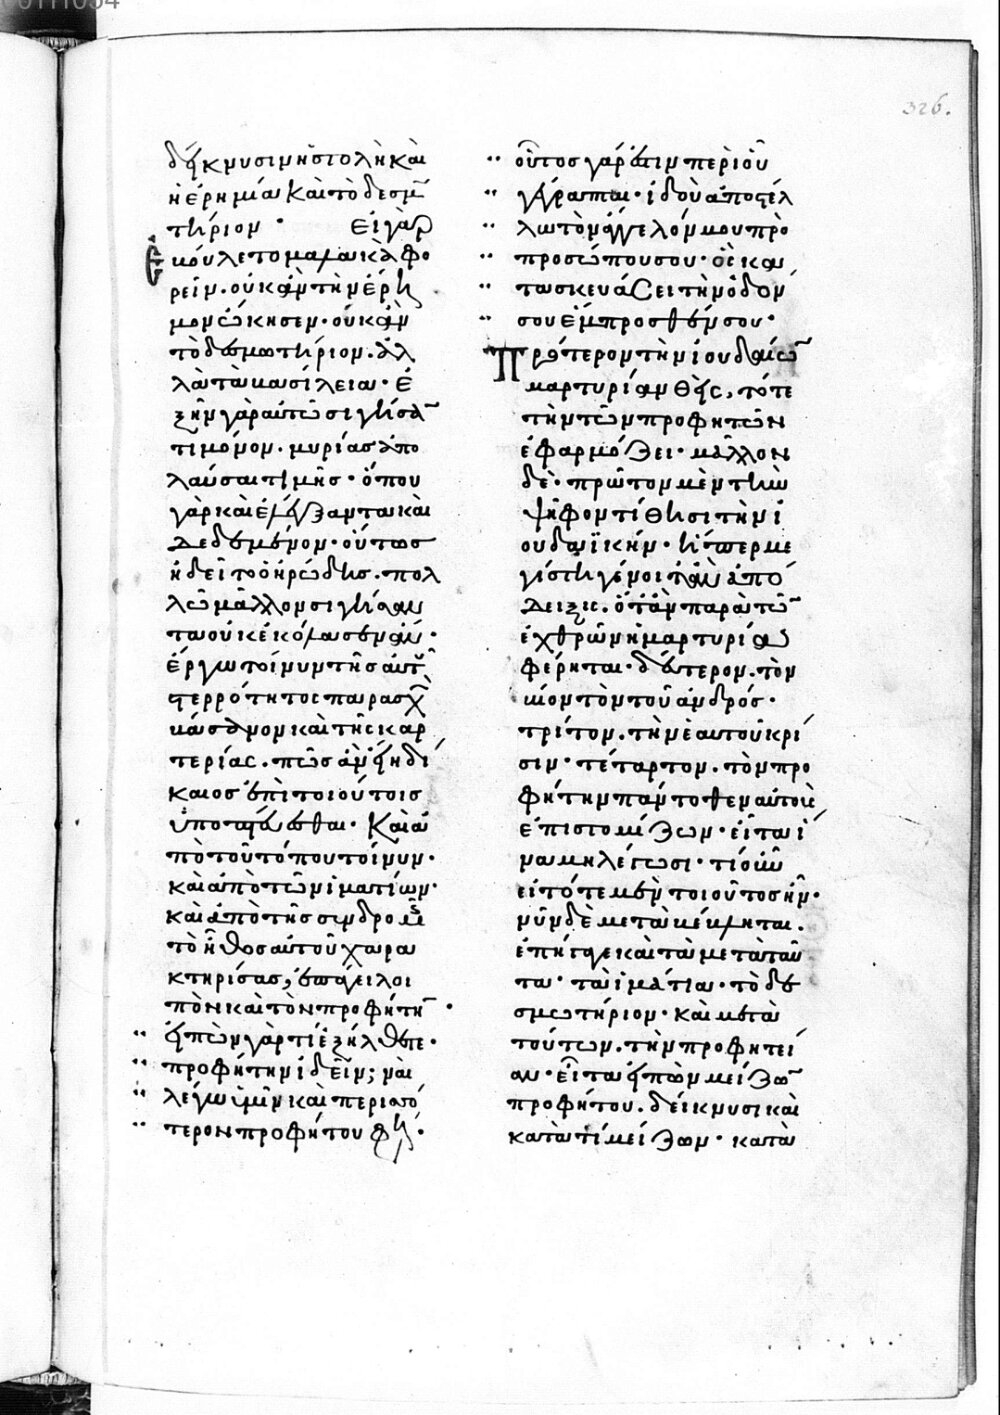 326.
δείκνυσιν ἡ στολὴ καὶ
ἡ ἐρημία καὶ τὸ δεσμω
τήριον · Εἰ γὰρ
ἐβούλετο μαλακὰ φο
ρεῖν · οὐκ ἂν τὴν ἔρη
μον ᾤκησεν · οὐκ ἂν
τὸ δεσμωτήριον · ἀλ
λὰ τὰ βασίλεια · ἐ
ξῆν γὰρ αὐτῷ σιγήσαν
τι μόνον · μυρίας ἀπο
λαῦσαι τιμῆς · ὅπου
γὰρ καὶ ἐλέγξαντα καὶ
δεδεμένον · οὕτως
ᾐδεῖτο ὁ ἡρώδης · πολ
λῷ μᾶλλον σιγήσαν
τα οὐκ ἐκόλασεν ἄν ·
ἔργῳ τοίνυν τῆς αὐτοῦ
στερρότητος πεῖραν παρασχ
βάσανον καὶ τῆς καρ
τερίας · πῶς ἂν εἴη δί
καιος ἐπὶ τοιούτοις
ὑποπτεύεσθαι · Καὶ ἀ
πὸ τοῦ τόπου τοίνυν ·
καὶ ἀπὸ τῶν ἱματίων ·
καὶ ἀπὸ τῆς συνδρομῆς
τὸ ἦθος αὐτοῦ χαρα
κτηρίσας, ἐπάγει λοι
πὸν καὶ τὸν προφήτην ·
εἰπὼν γὰρ τί ἐξήλθετε ·
προφήτην ἰδεῖν; ναὶ
λέγω ὑμῖν καὶ περισσό
τερον προφήτου φησὶ ·
οὗτος γάρ ἐστιν περὶ οὗ
γέγραπται · ἰδοὺ ἀποστέλ
λω τὸν ἄγγελόν μου πρὸ
προσώπου σου · ὃς κα
τασκευάσει τὴν ὁδόν
σου ἔμπροσθέν σου ·
Πρότερον τὴν ἰουδαίων
μαρτυρίαν θεὶς, τότε
τὴν τῶν προφητῶν
ἐφαρμόζει · μᾶλλον
δὲ · πρῶτον μὲν τὴν
ψῆφον τίθησι τὴν ἰ
ουδαϊκήν · ἥπερ με
γίστη γένοιτ' ἂν ἀπό
δειξις · ὅταν παρὰ τῶν
ἐχθρῶν ἡ μαρτυρία
φέρηται · δεύτερον · τὸν
βίον τὸν τοῦ ἀνδρός ·
τρίτον · τὴν ἑαυτοῦ κρί
σιν · τέταρτον · τὸν προ
φήτην πάντοθεν αὐτοὺς
ἐπιστομίζων · εἶτα ἵ
να μὴ λέγωσι · τί οὖν
εἰ τότε μὲν τοιοῦτος ἦν ·
νῦν δὲ μεταβέβληται ·
ἐπήγαγε καὶ τὰ μετὰ ταῦ
τα · τὰ ἱμάτια · τὸ δε
σμωτήριον · καὶ μετὰ
τούτων · τὴν προφητεί
αν · εἶτα εἰπὼν μείζων
προφήτου · δείκνυσι καὶ
κατὰ τί μείζων · κατὰ